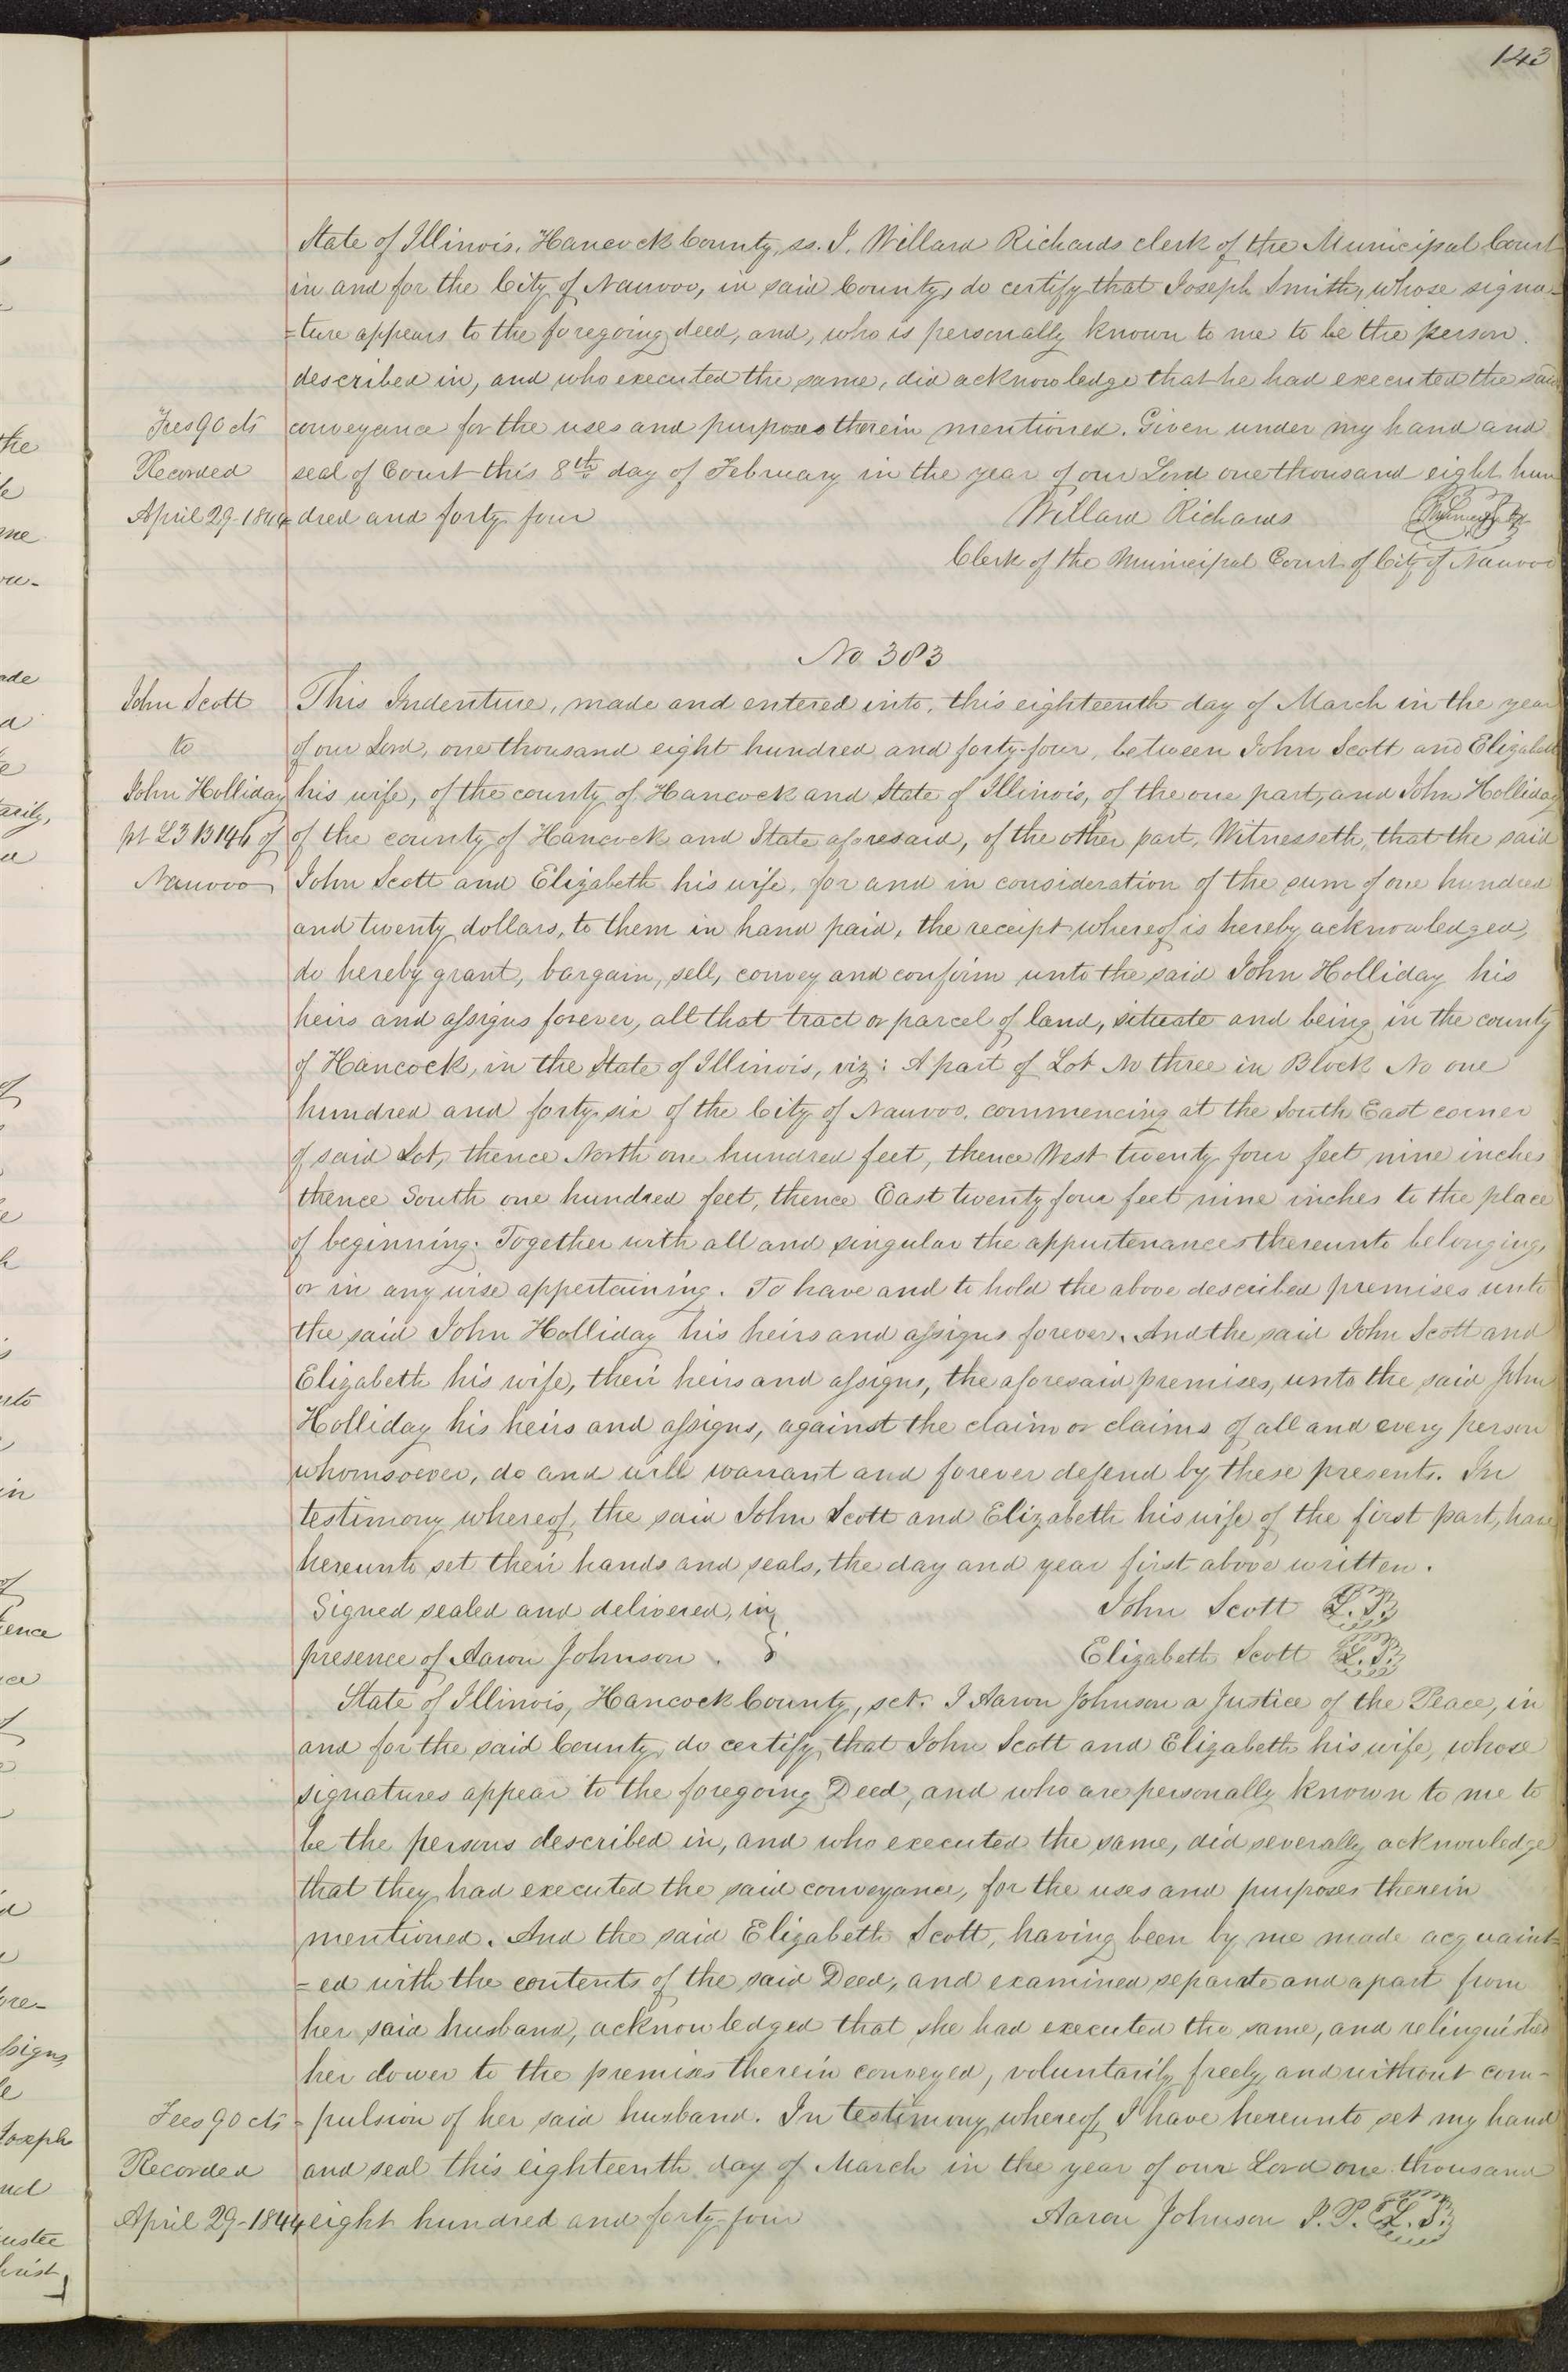 143
State of Illinois, Hancock County, ss. I, Willard Richards clerk of the Municipal Court
in and for the City of Nauvoo, in said County, do certify that Joseph Smith, whose signa-
=ture appears to the foregoing deed, and, who is personally known to me to be the person
described in, and who executed the same, did acknowledge that he had executed the said
Fees 90 cts
conveyance for the uses and purposes therein mentioned. Given under my hand and
Recorded
seal of Court this 8th day of February in the year of our Lord one thousand eight hun
April 29-1844
=dred and forty four
Willard Richards
Clerk of the Municipal Court of City of Nauvoo
No 383
John Scott
This Indenture, made and entered into, this eighteenth day of March in the year
to
of our Lord, one thousand eight hundred and forty-four, between John Scott and Elizabeth
John Holliday
his wife, of the county of Hancock and State of Illinois, of the one part, and John Holliday
pt L3 B146 of
of the county of Hancock and State aforesaid, of the other part, Witnesseth, that the said
Nauvoo
John Scott and Elizabeth his wife, for and in consideration of the sum of one hundred
and twenty dollars, to them in hand paid, the receipt whereof is hereby acknowledged,
do hereby grant, bargain, sell, convey and confirm unto the said John Holliday his
heirs and assigns forever, all that tract or parcel of land, situate and being in the county
of Hancock, in the State of Illinois, viz: A part of Lot No three in Block No one
hundred and forty-six of the City of Nauvoo, commencing at the South East corner
of said Lot, thence North one hundred feet, thence West twenty four feet nine inches
thence South one hundred feet, thence East twenty four feet nine inches to the place
of beginning. Together with all and singular the appurtenances thereunto belonging,
or in any wise appertaining. To have and to hold the above described premises unto
the said John Holliday his heirs and assigns forever. And the said John Scott and
Elizabeth his wife, their heirs and assigns, the aforesaid premises, unto the said John
Holliday his heirs and assigns, against the claim or claims of all and every person
whomsoever, do and will warrant and forever defend by these presents. In
testimony whereof, the said John Scott and Elizabeth his wife of the first part, have
hereunto set their hands and seals, the day and year first above written.
Signed sealed and delivered, in
John Scott L.S.
presence of Aaron Johnson.
Elizabeth Scott L.S.
State of Illinois, Hancock County, sct. I Aaron Johnson a Justice of the Peace, in
and for the said County, do certify, that John Scott and Elizabeth his wife, whose
signatures appear to the foregoing Deed, and who are personally known to me to
be the persons described in, and who executed the same, did severally acknowledge
that they had executed the said conveyance, for the uses and purposes therein
mentioned. And the said Elizabeth Scott, having been by me made acquaint=
=ed with the contents of the said Deed, and examined separate and apart from
her said husband, acknowledged that she had executed the same, and relinquished
her dower to the premises therein conveyed, voluntarily freely, and without com-
Fees 90 cts
=pulsion of her said husband. In testimony whereof, I have hereunto set my hand
Recorded
and seal this eighteenth day of March in the year of our Lord one thousand
April 29-1844
eight hundred and forty-four
Aaron Johnson J.P. L.S.